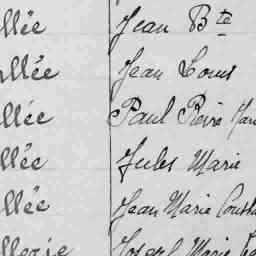 llée Jean Bte
llée Jean Louis
llée Paul René
llée Jules Marie
llée Jean Marie
Joseph Marie